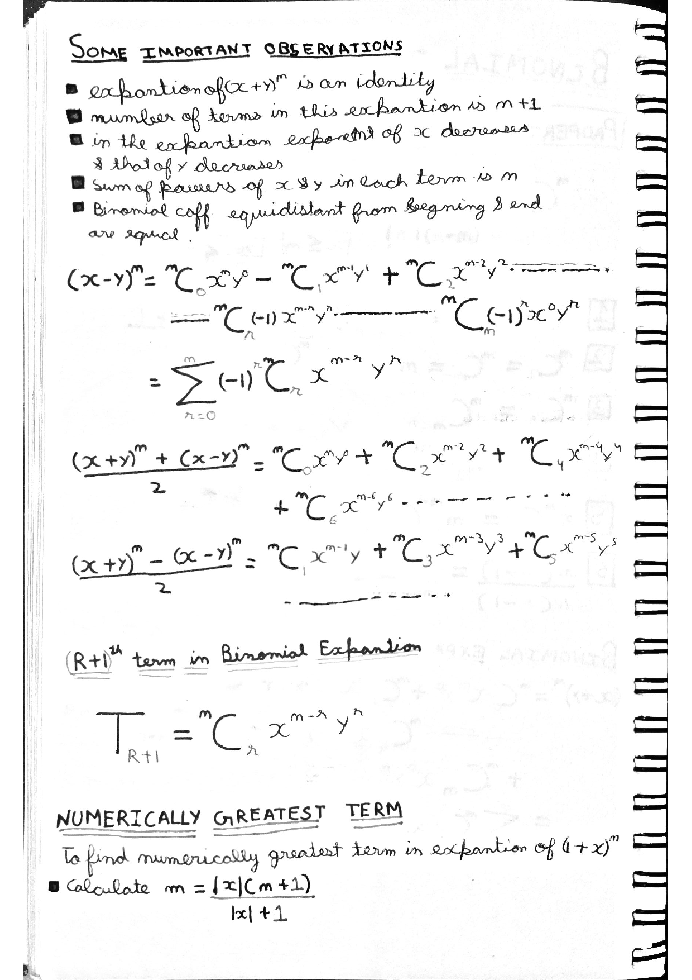 SOME IMPORTANT OBSERVATIONS
▪ expantion of (x+y)^n is an identity
▪ number of terms in this expantion is n+1
▪ in the expantion exponent of x decreases
& that of y decreases
▪ Sum of powers of x & y in each term is n
▪ Binomial coff equidistant from begning & end
are equal.
(x-y)^n = ^nC_0 x^n y^0 - ^nC_1 x^{n-1} y^1 + ^nC_2 x^{n-2} y^2 ........
—— ^nC_r (-1) x^{n-r} y^r ———— ^nC_n (-1)^n x^0 y^n
= ∑_{r=0}^{n} (-1)^r ^nC_r x^{n-r} y^r
((x+y)^n + (x-y)^n)/2 = ^nC_0 x^n y^0 + ^nC_2 x^{n-2} y^2 + ^nC_4 x^{n-4} y^4
+ ^nC_6 x^{n-6} y^6 ..........
((x+y)^n - (x-y)^n)/2 = ^nC_1 x^{n-1} y + ^nC_3 x^{n-3} y^3 + ^nC_5 x^{n-5} y^5
..........
(R+1)^th term in Binomial Expantion
T_{R+1} = ^nC_r x^{n-r} y^r
NUMERICALLY GREATEST TERM
To find numerically greatest term in expantion of (1+x)^n
▪ Calculate m = |x|(n+1)
|x|+1